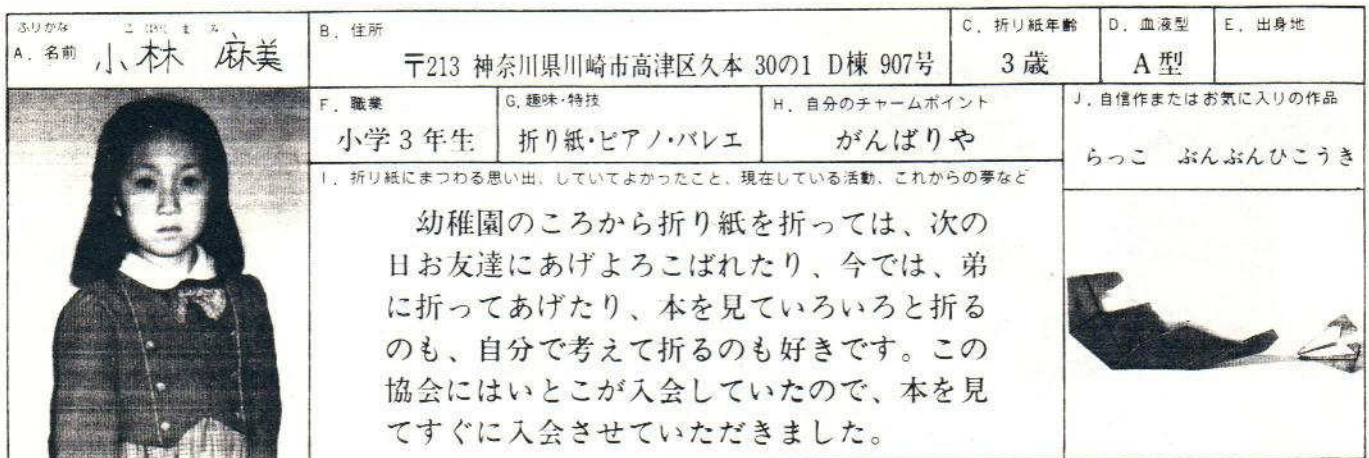 ふりがな こばやし まみ
A. 名前 小林 麻美
B. 住所
〒213 神奈川県川崎市高津区久本 30の1 D棟 907号
C. 折り紙年齢
3歳
D. 血液型
A型
E. 出身地
F. 職業
小学3年生
G. 趣味・特技
折り紙・ピアノ・バレエ
H. 自分のチャームポイント
がんばりや
I. 折り紙にまつわる思い出、していてよかったこと、現在している活動、これからの夢など
幼稚園のころから折り紙を折っては、次の
日お友達にあげよろこばれたり、今では、弟
に折ってあげたり、本を見ていろいろと折る
のも、自分で考えて折るのも好きです。この
協会にはいとこが入会していたので、本を見
てすぐに入会させていただきました。
J. 自信作またはお気に入りの作品
らっこ ぶんぶんひこうき